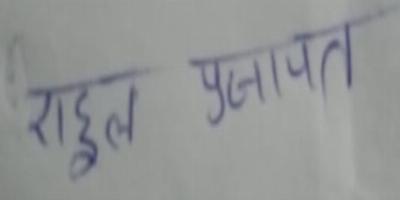 राहुल प्रजापत